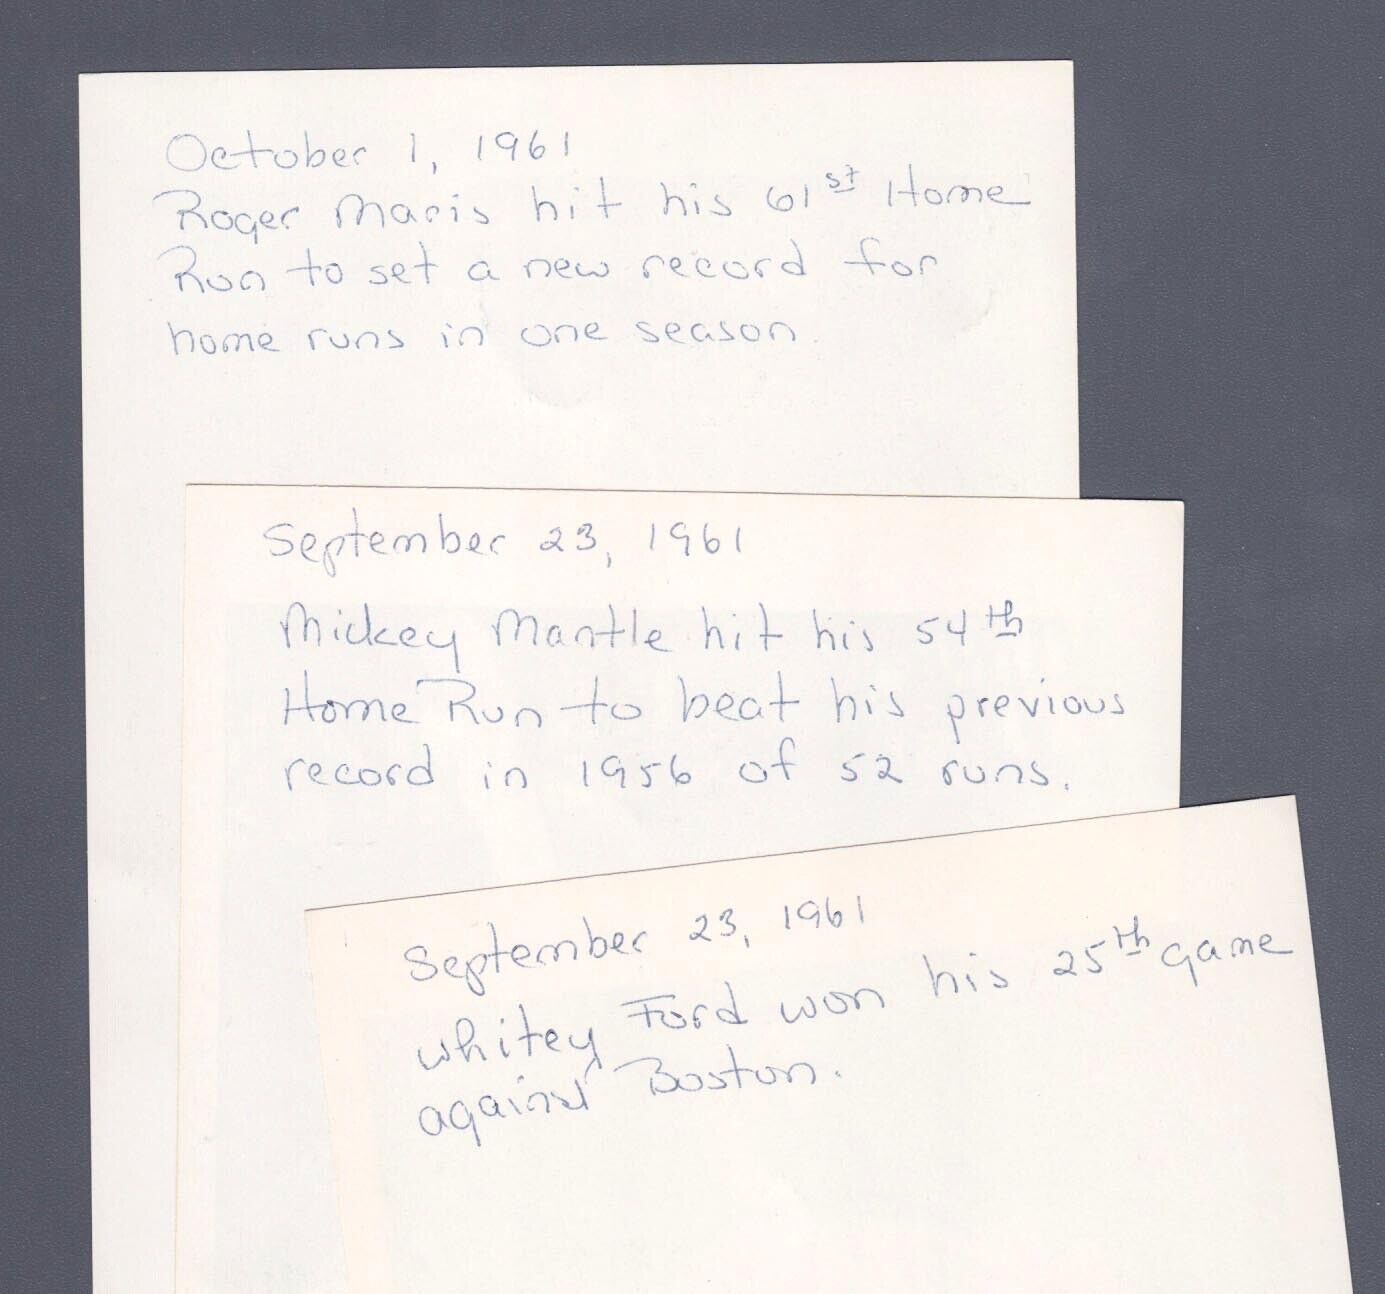 October 1, 1961
Roger Maris hit his 61st Home
Run to set a new record for
home runs in one season.
September 23, 1961
Mickey Mantle hit his 54th
Home Run to beat his previous
record in 1956 of 52 runs.
September 23, 1961
Whitey Ford won his 25th game
against Boston.